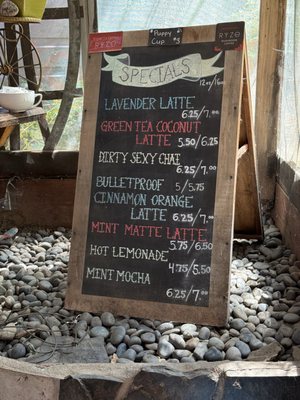 RYZE
"Puppy Cup" $
RYZE
SPECIALS
12oz/16oz
LAVENDER LATTE
6.25/7.00
GREEN TEA COCONUT
LATTE 5.50/6.25
DIRTY SEXY CHAI
6.25/7.00
BULLETPROOF 5/5.75
CINNAMON ORANGE
LATTE 6.25/7.00
MINT MATTE LATTE
5.75/6.50
HOT LEMONADE
4.75/5.50
MINT MOCHA
6.25/7.00